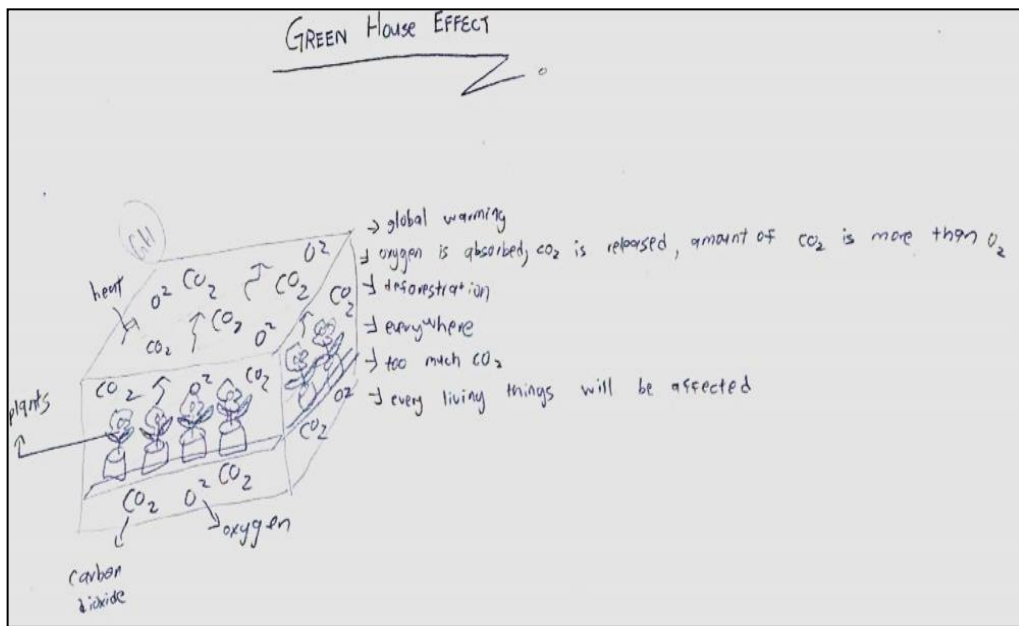 GREEN HOUSE EFFECT
→ global warming
→ oxygen is absorbed, CO₂ is released, amount of CO₂ is more than O₂
→ deforestration
→ everywhere
→ too much CO₂
→ every living things will be affected
heat
O² CO₂ CO₂ O²
CO₂ CO₂ O² CO₂
plants
CO₂ O² CO₂ O²
CO₂ O² CO₂ CO₂
oxygen
carbon
dioxide